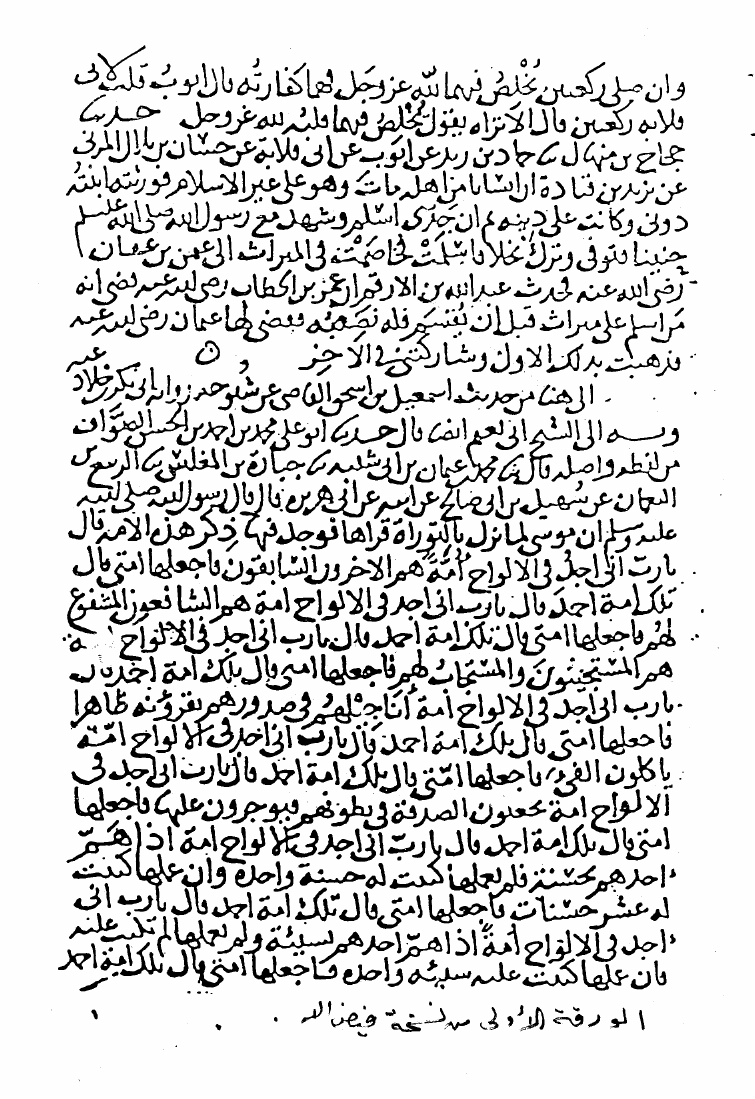 وان صلى ركعتين يُخْلِصُ فيهما لله عز وجل فهما كفارته قال ايوب قلت لابى
قلابة ركعتين قال الا تراه يقول يُخْلِصُ فيهما قلبه لله عز وجل حدثنا
حجاج بن منهال ثنا حماد بن زيد عن ايوب عن ابى قلابة عن حسّان بن بلال المزنى
عن يزيد بن قتادة ان انسانا من اهله مات وهو على غير الاسلام فورثته ابنته
دونى وكانت على دينه ثم ان جَدّى اسلم وشهد مع رسول الله صلى الله عليه وسلم
حنينا فتوفى وترك نخلا فاسْلَمَتْ فخاصَمَتْنى فى الميراث الى عثمن بن عفان
رضى الله عنه فحدث عبد الله بن الارقم ان عمر بن الخطاب رضى الله عنه قضى انه
من اسلم على ميراث قبل ان يُقْسَم فله نصيبه فقضى لها عثمان رضى الله عنه
فذهبت بذلك الاول وشاركتنى فى الآخر
الى هنا من حديث اسمعيل بن اسحق القاضى عن شيوخه رواية ابى بكر بن خلاد عنه
وبه الى الشيخ ابى نعيم ايضا قال حدثنا ابو على محمد بن احمد بن الحسن الصوَّاف
من لفظه واصله قال ثنا محمد بن عثمان بن ابى شيبة ثنا جبارة بن المغلس ثنا الربيع بن
النعمان عن سُهيل بن ابى صالح عن ابيه عن ابى هريرة قال قال رسول الله صلى الله
عليه وسلم ان موسى لما نزل بالتوراة قراها فوجد فيها ذكر هذه الامة قال
يارب انى اجد فى الالواح أُمَّةً هم الاخرون السابقون فاجعلها امتى قال
تلك امة احمد قال يارب انى اجد فى الالواح امة هم الشافعون المشفوع
لهم فاجعلها امتى قال تلك امة احمد قال يارب انى اجد فى الالواح امة
هم المستجيبون والمستجاب لهم فاجعلها امتى قال تلك امة احمد قال
يارب انى اجد فى الالواح امة أناجيلهم فى صدورهم يقرؤنه ظاهرا
فاجعلها امتى قال تلك امة احمد قال يارب انى اجد فى الالواح امة
ياكلون الفىء فاجعلها امّتى قال تلك امة احمد قال يارب انى اجد فى
الالواح امة يجعلون الصدقة فى بطونهم فيوجرون عليها فاجعلها
امتى قال تلك امة احمد قال يارب انى اجد فى الالواح امة اذا هَمّ
احدهم بحسنة فلم يعملها كتبت له حسنة واحدة وان عملها كتبت
له عشر حسنات فاجعلها امتى قال تلك امة احمد قال يارب انى
اجد فى الالواح امة اذا همّ احدهم بسيئة ولم يعملها لم تكتب عليه
فان عملها كتبت عليه سيئة واحدة فاجعلها امتى قال تلك امة احمد
الورقة الأولى من نسخة فيض الله
١